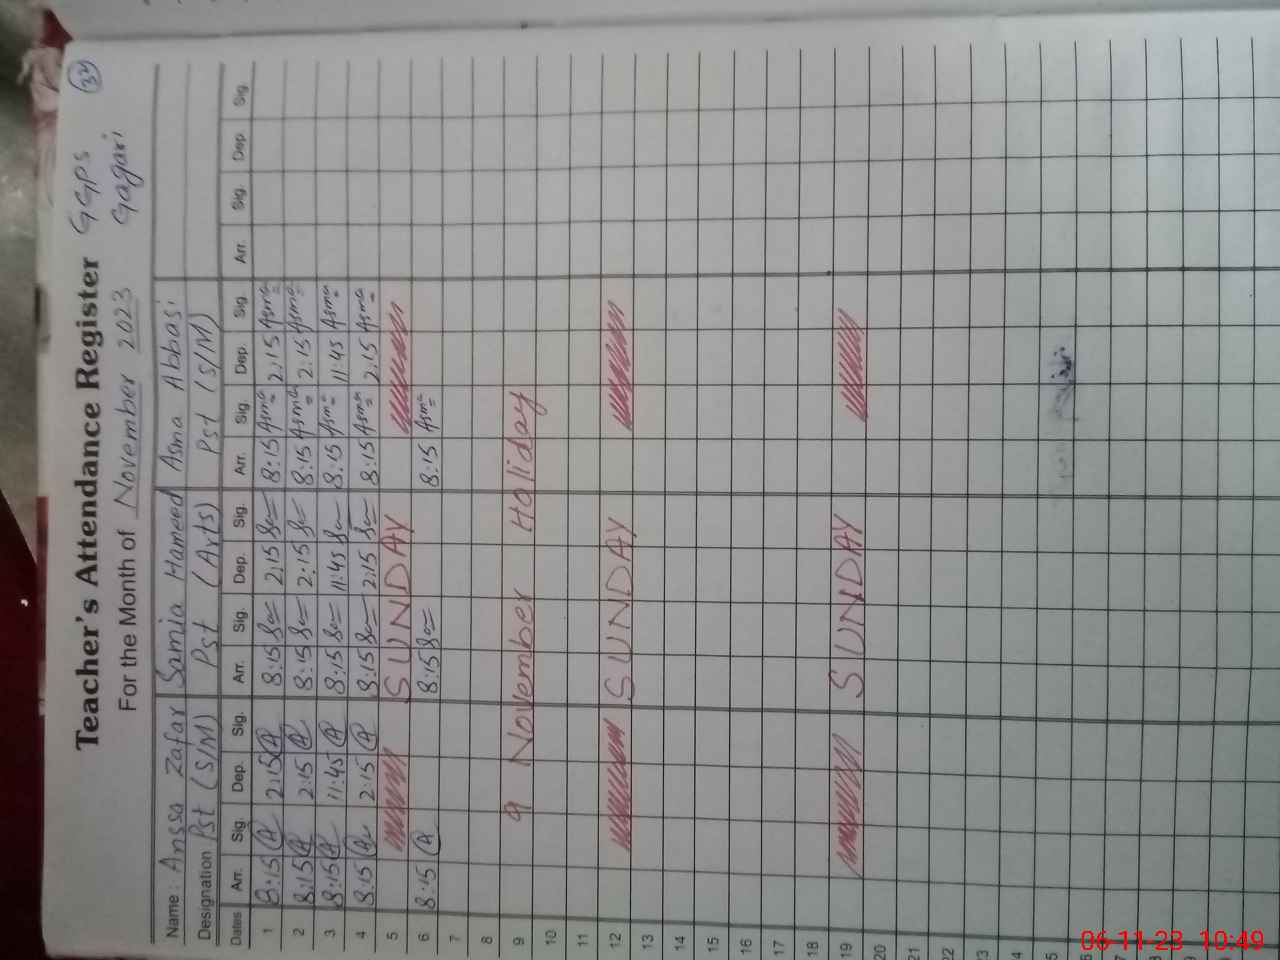 34
Teacher's Attendance Register GGPS
For the Month of November 2023 Gagari
Name: Anssa Zafar Samia Hameed Asma Abbasi
Designation Pst (S/M) Pst (Arts) Pst (S/M)
Dates Arr. Sig. Dep. Sig. Arr. Sig. Dep. Sig. Arr. Sig. Dep. Sig. Arr. Sig. Dep Sig.
1 8:15 2:15 8:15 2:15 8:15 Asma 2:15 Asma
2 8:15 2:15 8:15 2:15 8:15 Asma 2:15 Asma
3 8:15 11:45 8:15 11:45 8:15 Asma 11:45 Asma
4 8:15 2:15 8:15 2:15 8:15 Asma 2:15 Asma
5 SUNDAY
6 8:15 8:15 8:15 Asma
7
8
9 9 November Holiday
10
11
12 SUNDAY
13
14
15
16
17
18
19 SUNDAY
20
21
22
23
06-11-23 10:49